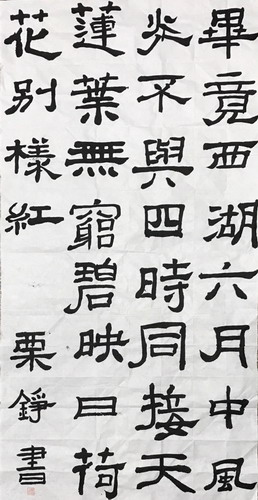 畢竟西湖六月中風
光不與四時同接天
蓮葉無窮碧映日荷
花别樣紅 栗錚書